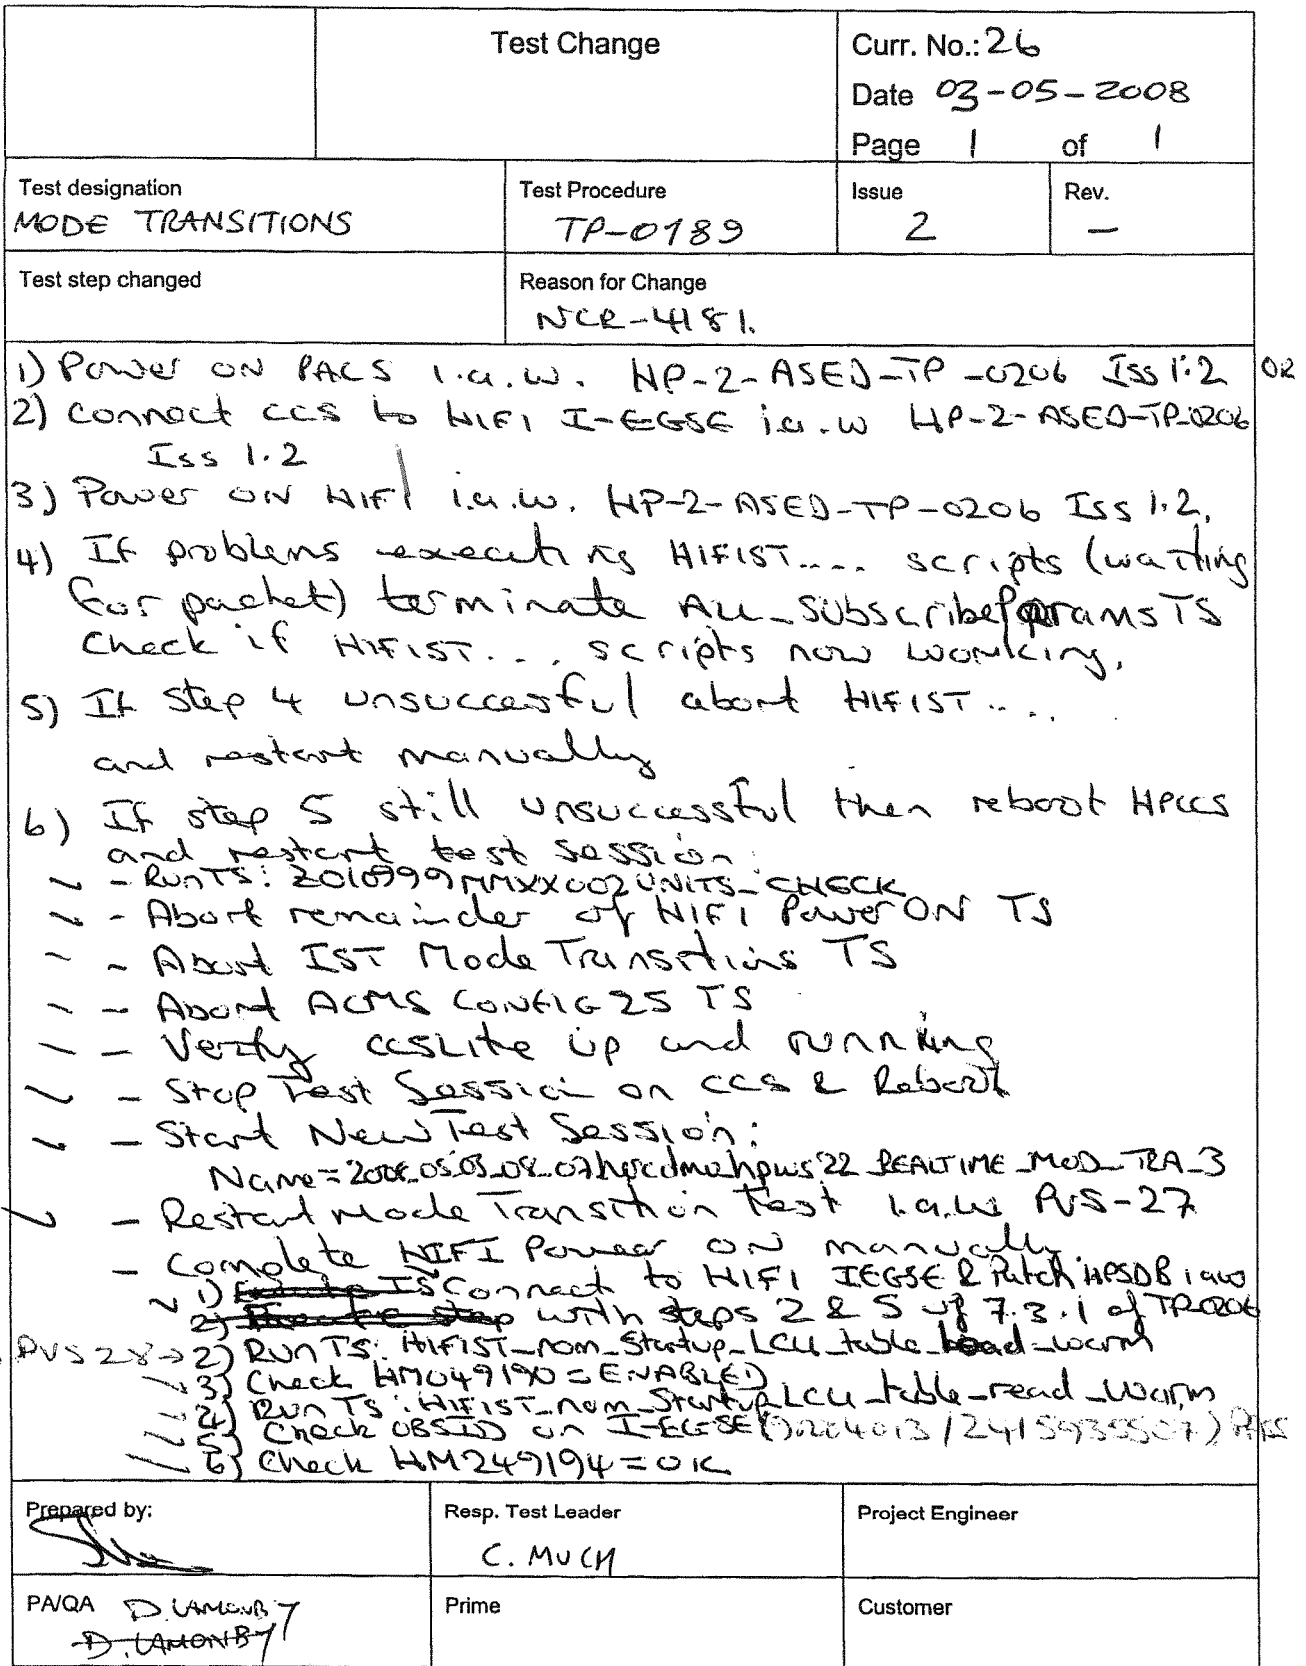 Test Change
Curr. No.: 26
Date 03-05-2008
Page 1 of 1
Test designation
MODE TRANSITIONS
Test Procedure
TP-0189
Issue
2
Rev.
—
Test step changed
Reason for Change
NCR-4181.
1) Power ON PACS i.a.w. HP-2-ASED-TP-0206 Iss 1.2 OR
2) connect CCS to HIFI I-EGSE i.a.w HP-2-ASED-TP-0206
Iss 1.2
3) Power ON HIFI i.a.w. HP-2-ASED-TP-0206 Iss 1.2.
4) If problems executing HIFIST.... scripts (waiting
for packet) terminate ALL_SubscribeParamsTS
Check if HIFIST.... scripts now working.
5) If step 4 unsuccessful abort HIFIST....
and restart manually
6) If step 5 still unsuccessful then reboot HPCCS
and restart test session:
- Run TS: Z010999MMXX002UNITS_CHECK
- Abort remainder of HIFI Power ON TS
- Abort IST Mode Transitions TS
- Abort ACMS CONFIG 25 TS
- Verify CCSLite up and running
- Stop Test Session on CCS & Reboot
- Start New Test Session:
Name= REALTIME_MOD_TRA_3
- Restart Mode Transition test i.a.w PVS-27
- Complete HIFI Power ON manually
1) Connect to HIFI IEGSE & Patch HPSDB iaw
with steps 2 & 5 of 7.3.1 of TP0206
PVS28→2) Run TS: HIFIST_nom_Startup_LCU_table_load_warm
3) Check HM049190=ENABLED
4) Run TS: HIFIST_nom_Startup_LCU_table_read_warm
5) Check OBSID on I-EGSE
6) Check HM249194=OK
Prepared by:
Resp. Test Leader
C. MUCH
Project Engineer
PA/QA D. LAMONBY
D. LAMONBY
Prime
Customer